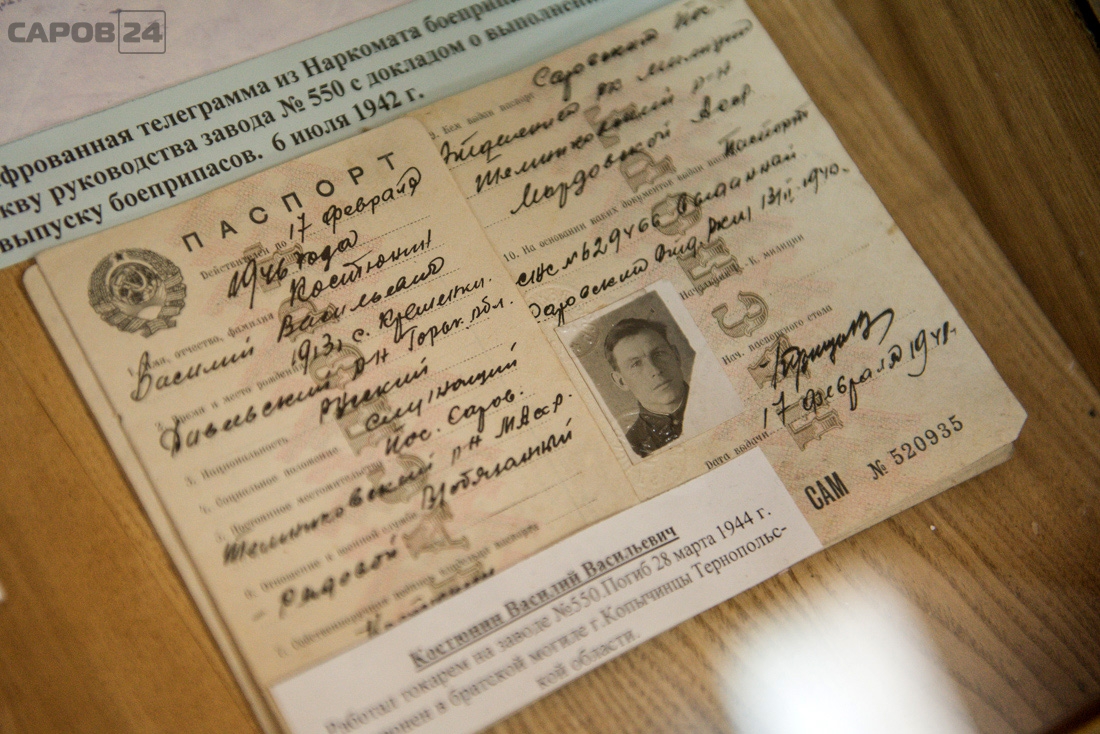 САРОВ 24
фрованная телеграмма из Наркомата боеприпа
кву руководства завода № 550 с докладом о выполнени
выпуску боеприпасов. 6 июля 1942 г.
ПАСПОРТ
Действителен по 17 февраля
1946 года
Костюнин
1. Имя, отчество, фамилия
Василий Васильевич
2. Время и место рождения 1913 г. с. Кременки
Дивеевский р-н Горьк. обл.
3. Национальность Русский
4. Социальное положение Служащий
5. Постоянное местожительство Пос. Саров.
Темниковский р-н МАССР.
6. Отношение к военной службе Необязанный
Рядовой
7. Собственноручная подпись
9. Кем выдан паспорт Саровским пос.
Отделением рк милиции
Темниковский р-н
Мордовской АССР
10. На основании каких документов выдан паспорт Паспорт
№ 629466 выданный
Саровским 13/II 1940.
Начальник
К. милиции
Нач. паспортного стола
17 февраля 1941.
Дата выдачи
САМ № 520935
Костюнин Василий Васильевич
Работал токарем на заводе №550.Погиб 28 марта 1944 г.
онен в братской могиле г.Копычинцы Тернопольс-
кой области.